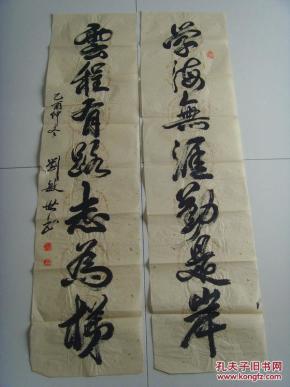 学海無涯勤是岸
雲程有路志為梯
乙酉仲冬 劉敏
孔夫子旧书网